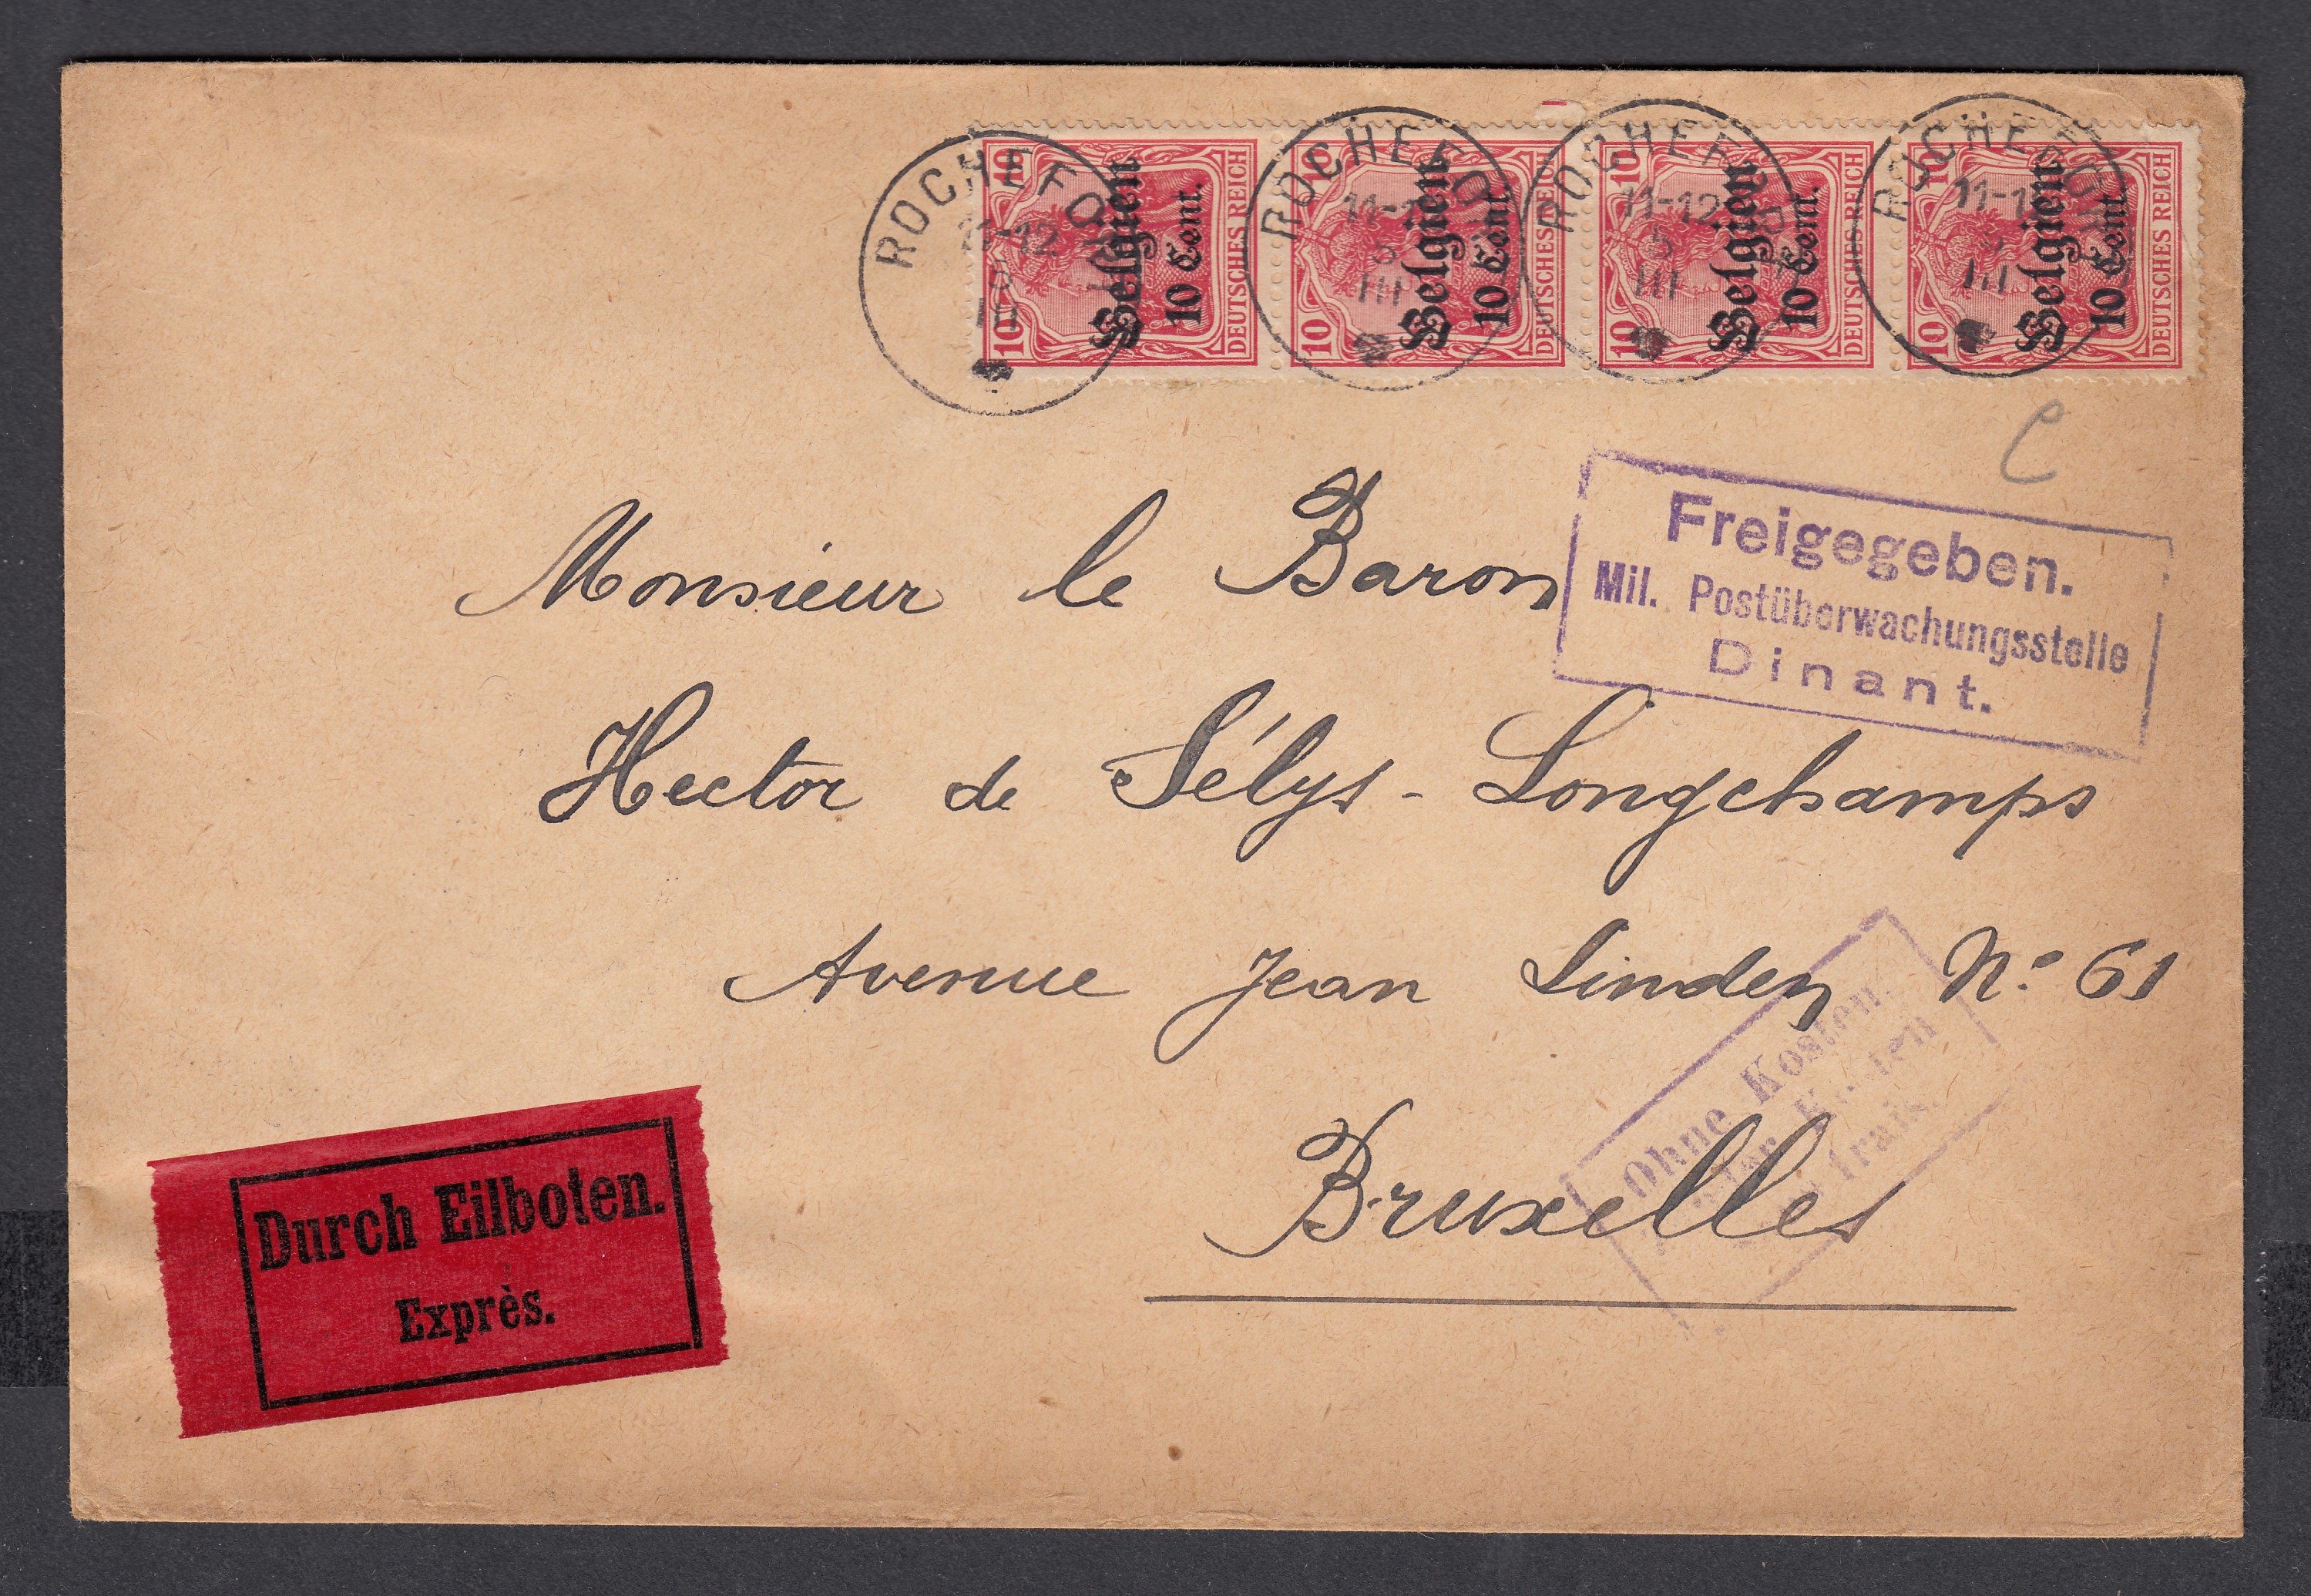 ROCHEFORT
11-12
5
III
10
10
Belgien
10 Cent.
DEUTSCHES REICH
ROCHEFO
11-1
5
III
10
10
Belgien
10 Cent.
DEUTSCHES REICH
ROCHEFOR
11-12
5
III
10
10
Belgien
10 Cent.
DEUTSCHES REICH
ROCHEFOR
11-1
5
III
10
10
Belgien
10 Cent.
DEUTSCHES REICH
Freigegeben.
Mil. Postüberwachungsstelle
Dinant.
Monsieur le Baron
Hector de Sélys-Longchamps
Avenue Jean Linden N° 61
Bruxelles
Ohne Kosten.
frais.
Durch Eilboten.
Exprès.